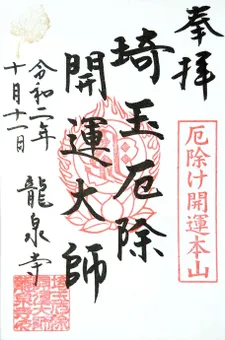 奉拝
厄除け開運本山
埼玉厄除
開運大師
令和二年
十月十一日
龍泉寺